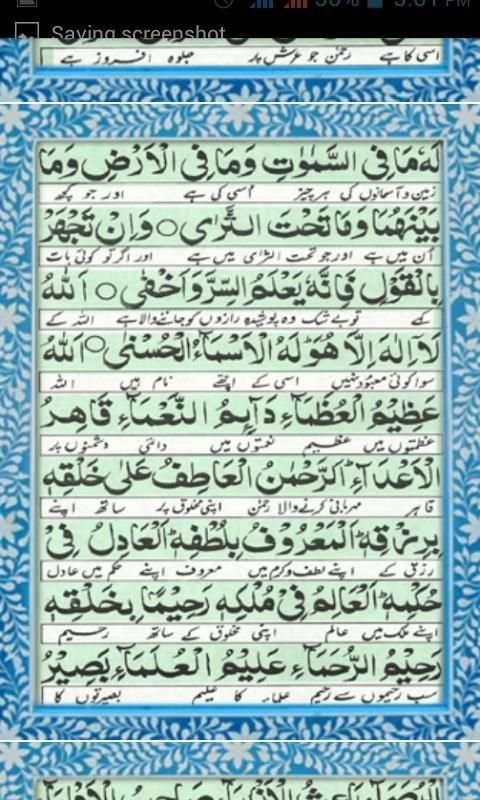 3:01 PM
Saving screenshot...
اسی کا ہے رحمٰن جو عرش پر جلوہ افروز ہے
لَهٗ مَا فِی السَّمٰوٰتِ وَمَا فِی الْاَرْضِ وَمَا
زمین و آسمانوں کی ہر چیز اُسی کی ہے اور جو کچھ
بَیْنَهُمَا وَمَا تَحْتَ الثَّرٰی ○ وَاِنْ تَجْهَرْ
اُن میں ہے اور جو تحت الثرٰی میں ہے اور اگر تو کوئی بات
بِالْقَوْلِ فَاِنَّهٗ یَعْلَمُ السِّرَّ وَاَخْفٰی ○ اَللهُ
کہے تو بے شک وہ پوشیدہ رازوں کو جاننے والا ہے اللہ کے
لَآ اِلٰهَ اِلَّا هُوَ لَهُ الْاَسْمَآءُ الْحُسْنٰی ○ اَللهُ
سوا کوئی معبود نہیں اسی کے اچھے نام ہیں اللہ
عَظِیْمُ الْعُظَمَآءِ دَآىِٕمُ النَّعْمَآءِ قَاهِرُ
عظمتوں میں عظیم نعمتوں میں دائمی دشمنوں پر
الْاَعْدَآءِ اَلرَّحْمٰنُ الْعَاطِفُ عَلٰی خَلْقِهٖ
قاہر مہربانی کرنے والا رحمٰن اپنی مخلوق پر ساتھ اپنے
بِرِزْقِهٖ اَلْمَعْرُوْفُ بِلُطْفِهٖ اَلْعَادِلُ فِیْ
رزق کے اپنے لطف و کرم میں معروف اپنے حکم میں عادل
حُكْمِهٖ اَلْعَالِمُ فِیْ مُلْكِهٖ رَحِیْمًا بِخَلْقِهٖ
اپنے ملک میں عالم اپنی مخلوق کے ساتھ رحیم
رَحِیْمُ الرُّحَمَآءِ عَلِیْمُ الْعُلَمَآءِ بَصِیْرُ
سب رحیموں سے رحیم علماء کا علیم بصیرتوں کا